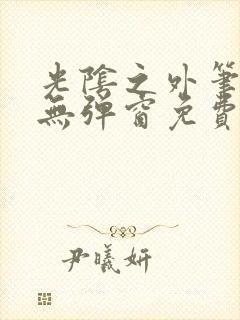 光陰之外筆
無彈窗免費
尹曦妍